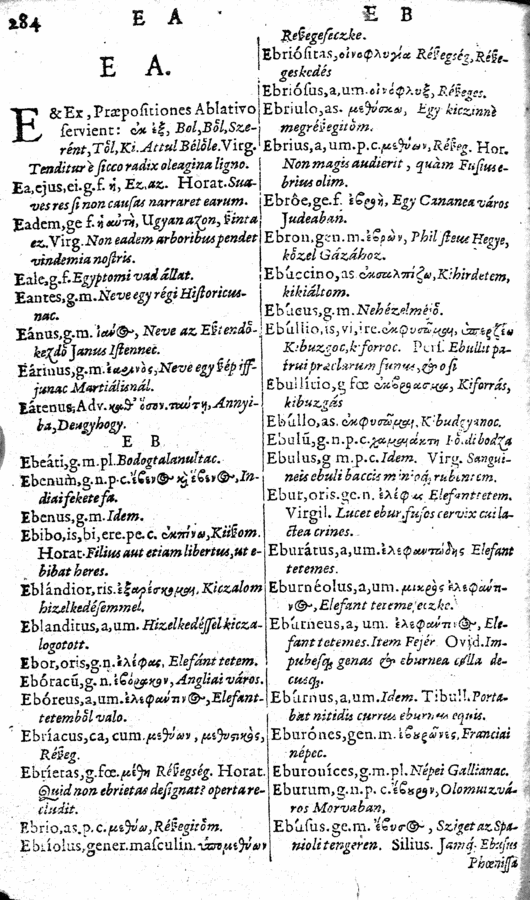 284
E A
E B
E A.
E & Ex, Præpositiones Ablativo
servient: ἐκ ἐξ, Bol, Böl, Sze-
rént, Töl, Ki. Attul Bélöle. Virg.
Tenditur è sicco radix oleagina ligno.
Ea, ejus, ei. g. f. ἡ, Ez. az. Horat. Sua-
ves res si non causas narraret earum.
Eadem, ge f. ἡ αὐτὴ, Ugyan azon,
ez. Virg. Non eadem arboribus pendet
vindemia nostris.
Eale, g. f. Egyptomi vad állat.
Eantes, g. m. Neve egy régi Historicus-
nac.
Eánus, g. m. Neve az
Janus Istennec.
Eárinus, g. m. ἐαρινὸς, Neve egy iff-
junac Martiálisnál.
Eátenus, Adv. Annyi-
ba, Deugyhogy.
E B
Ebeáti, g. m. pl. Bodogtalanultac.
Ebenum, g. n. p. c. In-
diai fekete fa.
Ebenus, g. m. Idem.
Ebibo, is, bi, ere. pe. c. ἐκπίνω,
Horat. Filius aut etiam libertus, ut e-
bibat heres.
Eblándior, ris. Kiczalom
hizelkedésemmel.
Eblanditus, a, um. Hizelkedéssel kicza-
logotott.
Ebor, oris, g. n. ἐλέφας, Elefánt tetem.
Ebóracũ, g. n. Angliai város.
Ebóreus, a, um. Elefant-
tetemböl valo.
Ebríacus, ca, cum. μεθύων, μεθυσικὸς,
Réſzeg.
Ebríetas, g. fœ. μέθη Réſzegség. Horat.
Quid non ebrietas designat? operta re-
cludit.
Ebrio, as. p. c. μεθύω, Réſzegitöm.
Ebríolus, gener. masculin. ὑπομεθύων
Réſzegeseczke.
Ebriósitas, οἰνοφλυγία Réſzegség, Réſze-
geskedés
Ebriósus, a, um. οἰνόφλυξ, Réſzeges.
Ebriulo, as. μεθύσκω, Egy kiczinnè
megréſzegitöm.
Ebrius, a, um. p. c. μεθύων, Réſzeg. Hor.
Non magis audierit, quàm Fusius e-
brius olim.
Ebròe, ge. f. Egy Cananea város
Judeaban.
Ebron, gen. m. Philisteus Hegye,
közel Gázához.
Ebúccino, as ἐκσαλπίζω, Kihirdetem,
kikiáltom.
Ebúcus, g. m.
Ebúllio, is, vi, ire.
Kibuzgoc, kiforroc. Persi. Ebullit pa-
trui præclarum funus, & o si
Ebullitio, g fœ Kiforrás,
kibuzgás
Ebúllo, as. Kibudgyanoc.
Ebulũ, g. n. p. c. χαμαιάκτη
Ebulus, g m p. c. Idem. Virg. Sangui-
neis ebuli baccis minioq; rubentem.
Ebur, oris. ge. n. ἐλέφας Elefant tetem.
Virgil. Lucet ebur, fusos cervix cui la-
ctea crines.
Eburátus, a, um. Elefant
tetemes.
Eburnéolus, a, um. μικρὸς ἐλεφάντι-
Elefant teteme/eczke.
Ebúrneus, a, um. Ele-
fant tetemes. Item Fejér Ovid. Im-
pubesq; genas & eburnea colla de-
cusq;.
Ebúrnus, a, um. Idem. Tibull. Porta-
bat nitidis currus eburnus equis.
Eburónes, gen. m. Franciai
népec.
Eburovíces, g. m. pl. Népei Gallianac.
Eburum, g. n. p. c. Olomuizvá-
ros Morvaban,
Ebúsus. ge. m. Sziget az Spa-
nioli tengeren. Silius. Jamq; Ebusus
Phœnissa